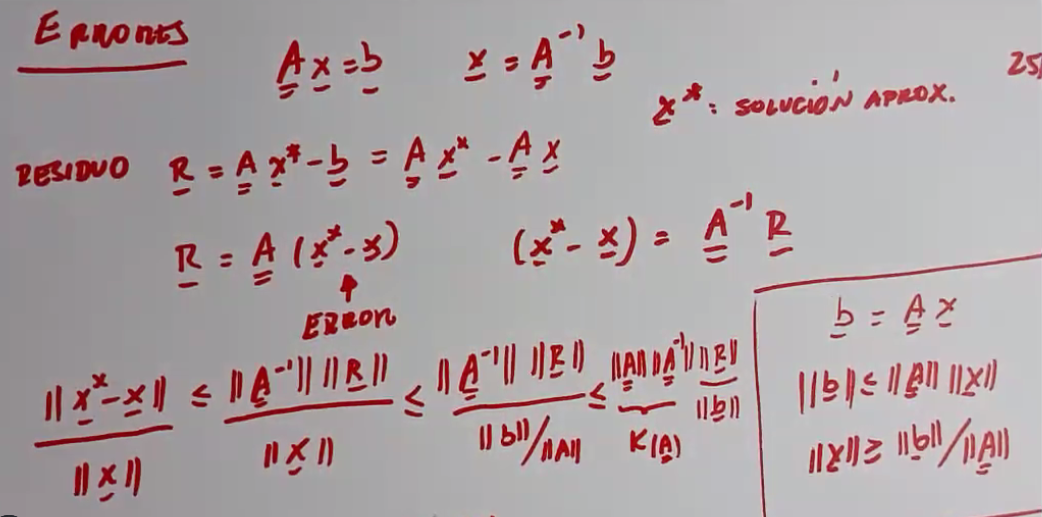 ERRORES
A x = b    x = A⁻¹ b
25
x*: SOLUCIÓN APROX.
RESIDUO  R = A x* - b = A x* - A x
R = A (x* - x)    (x* - x) = A⁻¹ R
ERROR
||x* - x|| / ||x|| ≤ ||A⁻¹|| ||R|| / ||x|| ≤ ||A⁻¹|| ||R|| / (||b||/||A||) ≤ ||A|| ||A⁻¹|| ||R|| / ||b||
K(A)
b = A x
||b|| ≤ ||A|| ||x||
||x|| ≥ ||b||/||A||